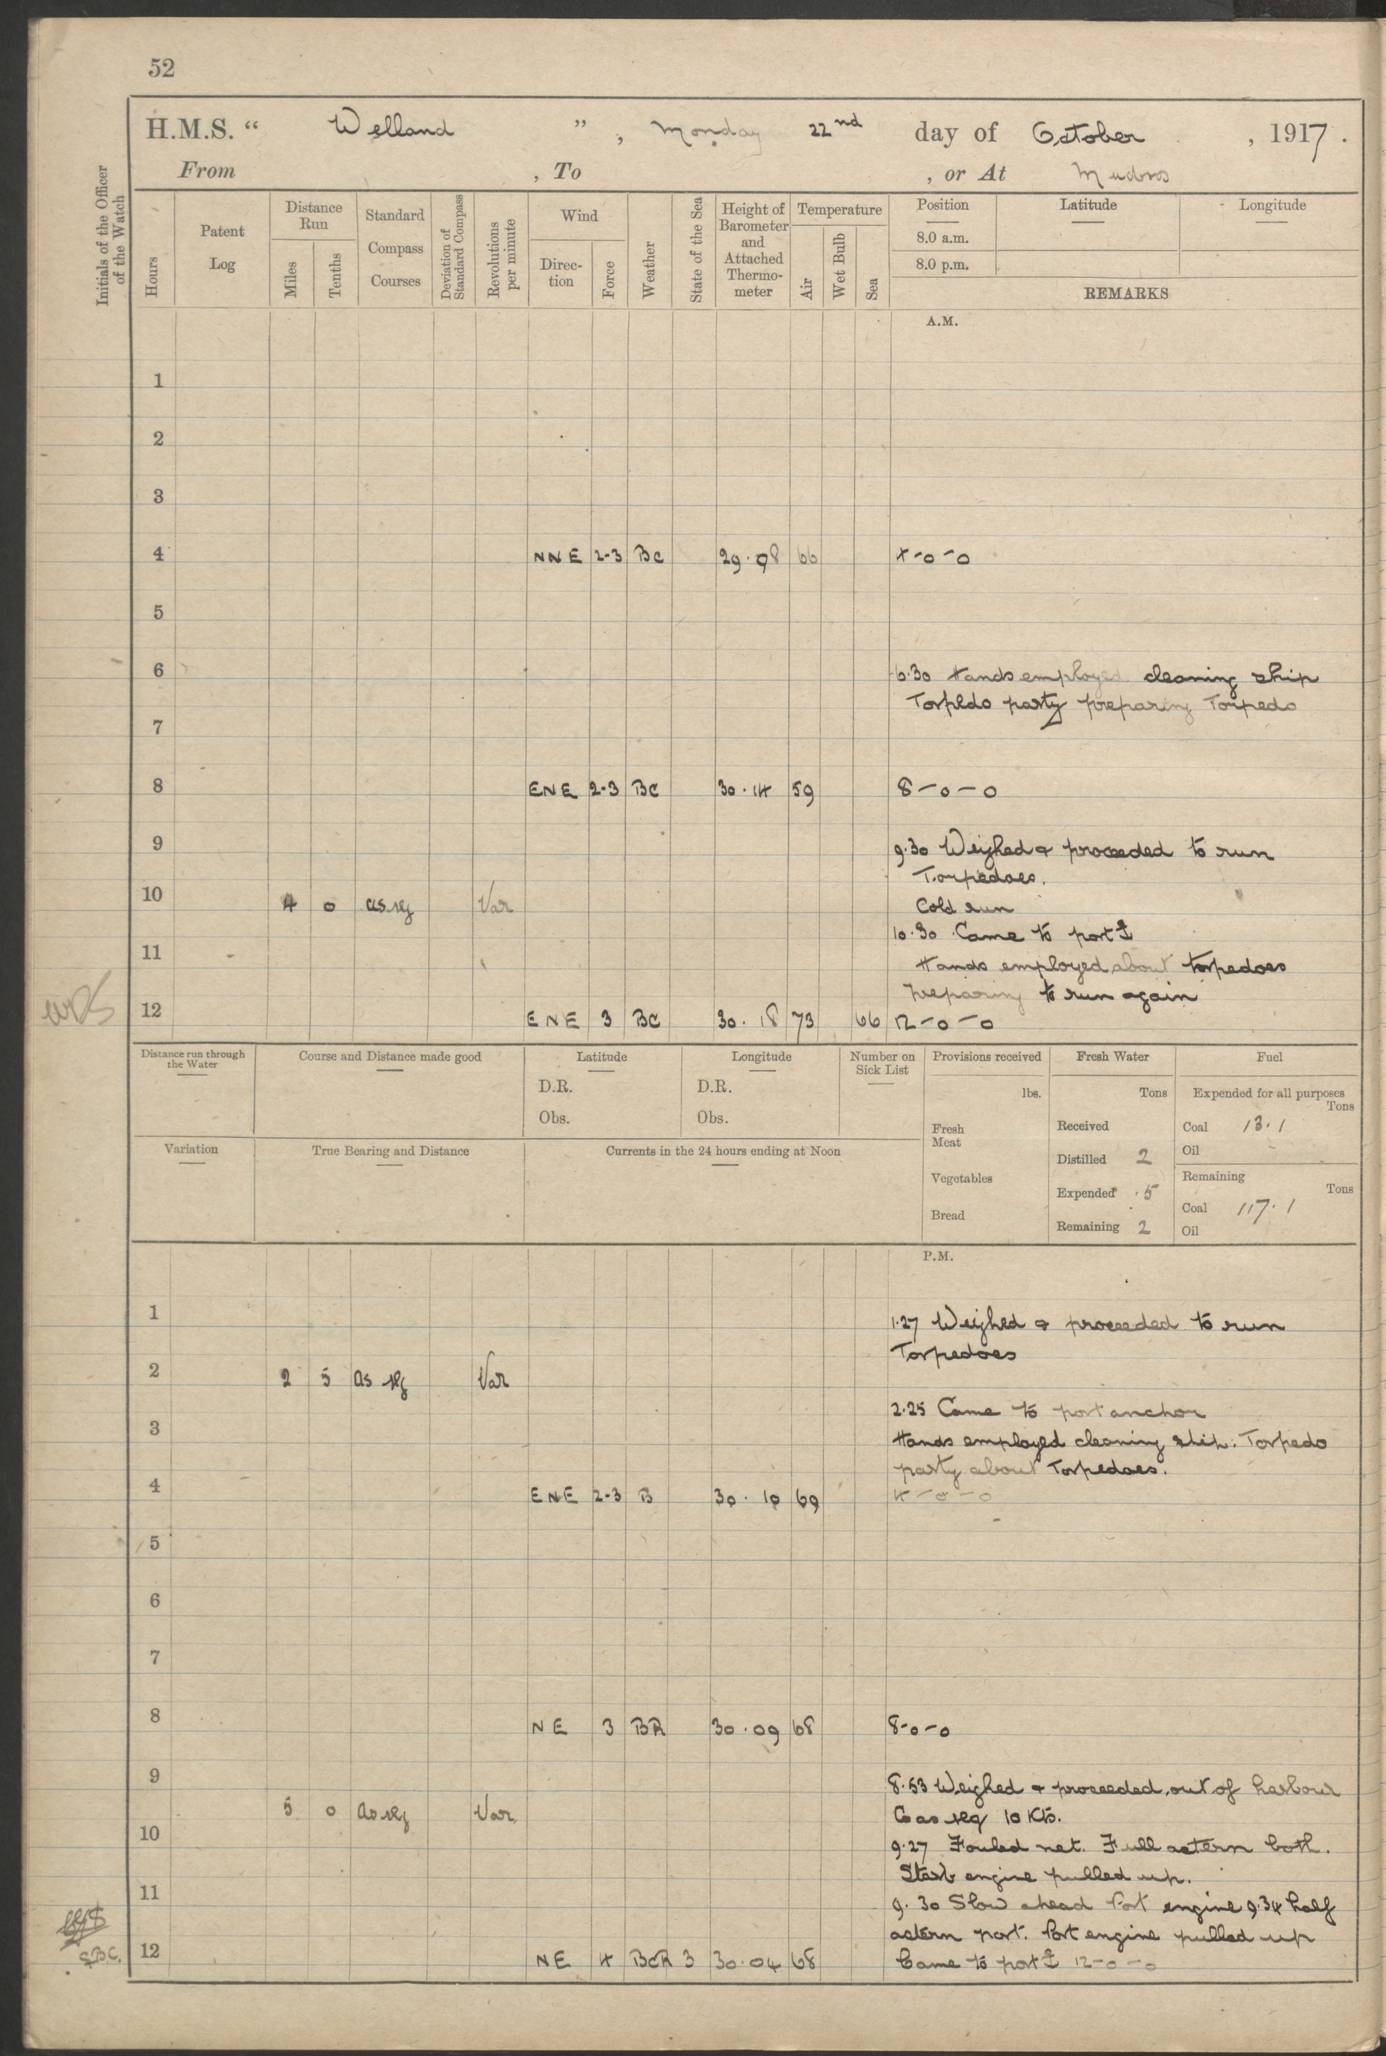 52
H.M.S. “ Welland ” , Monday 22nd day of October , 1917 .
From , To , or At Mudros
Initials of the Officer of the Watch
Hours
Patent Log
Distance Run
Miles
Tenths
Standard Compass Courses
Deviation of Standard Compass
Revolutions per minute
Wind
Direc-tion
Force
Weather
State of the Sea
Height of Barometer and Attached Thermo-meter
Temperature
Air
Wet Bulb
Sea
Position
8.0 a.m.
8.0 p.m.
Latitude
Longitude
REMARKS
A.M.
1
2
3
4 NNE 2-3 BC 29.98 66 4-0-0
5
6 6.30 Hands employed cleaning ship
Torpedo party preparing Torpedo
7
8 ENE 2-3 BC 30.14 59 8-0-0
9 9.30 Weighed & proceeded to run
Torpedoes.
10 4 0 as req Var Cold run
10.30 Came to port ⚓
11 Hands employed about torpedoes
preparing to run again
12 ENE 3 BC 30.18 73 66 12-0-0
Distance run through the Water
Course and Distance made good
Latitude
D.R.
Obs.
Longitude
D.R.
Obs.
Number on Sick List
Provisions received
lbs.
Fresh Meat
Vegetables
Bread
Fresh Water
Tons
Received
Distilled 2
Expended .5
Remaining 2
Fuel
Expended for all purposes
Tons
Coal 13.1
Oil -
Remaining
Tons
Coal 117.1
Oil
Variation
True Bearing and Distance
Currents in the 24 hours ending at Noon
P.M.
1 1.27 Weighed & proceeded to run
Torpedoes
2 2 5 as req Var
2.25 Came to port anchor
3 Hands employed cleaning ship. Torpedo
party about Torpedoes.
4 ENE 2-3 B 30.10 69 4-0-0
5
6
7
8 NE 3 BR 30.09 68 8-0-0
9 8.53 Weighed & proceeded out of harbour
5 0 as req Var Co as req 10 Kts.
10 9.27 Fouled net. Full astern both.
Starb engine pulled up.
11 9.30 Slow ahead Port engine 9.34 half
astern port. Port engine pulled up
S.B.C. 12 NE 4 BCR 3 30.04 68 Came to port ⚓ 12-0-0